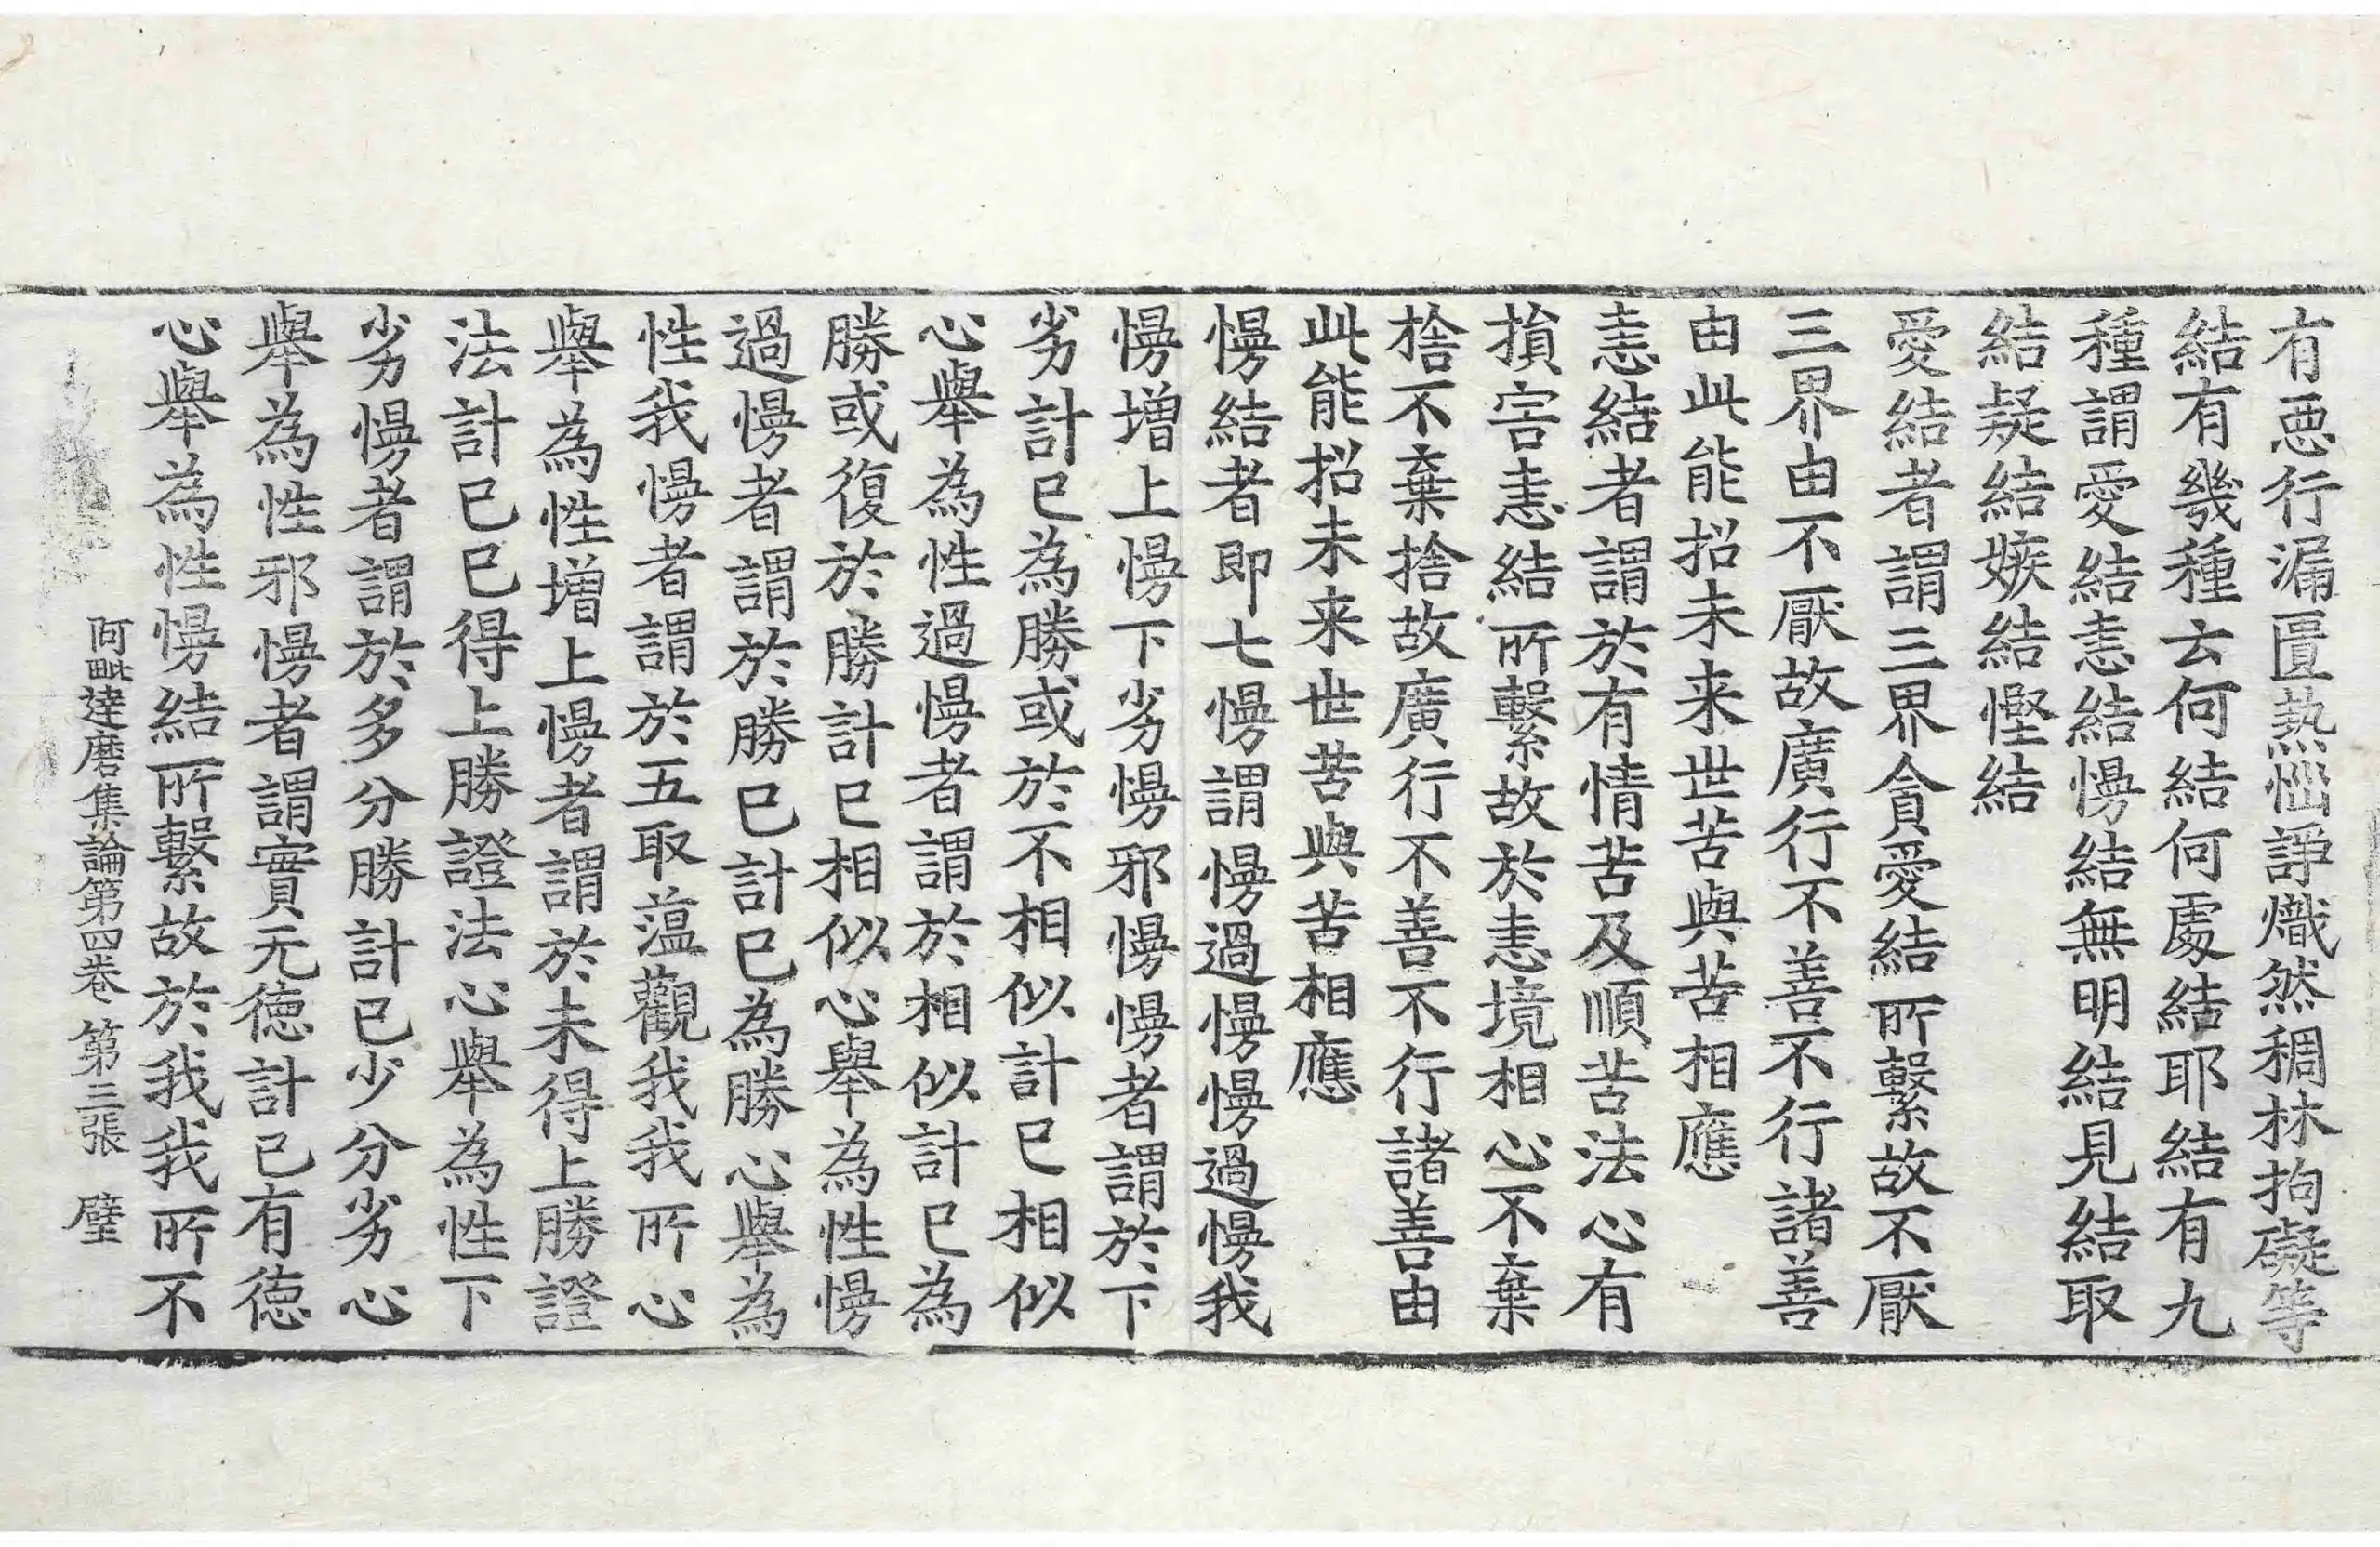 有惡行漏匱熱惱諍熾然稠林拘礙等
結有幾種云何結何處結耶結有九
種謂愛結恚結慢結無明結見結取
結疑結嫉結慳結
愛結者謂三界貪愛結所繫故不厭
三界由不厭故廣行不善不行諸善
由此能招未来世苦與苦相應
恚結者謂於有情苦及順苦法心有
損害恚結所繫故於恚境相心不棄
捨不棄捨故廣行不善不行諸善由
此能招未来世苦與苦相應
慢結者即七慢謂慢過慢慢過慢我
慢增上慢下劣慢邪慢慢者謂於下
劣計已為勝或於不相似計已相似
心舉為性過慢者謂於相似計已為
勝或復於勝計已相似心舉為性慢
過慢者謂於勝已計已為勝心舉為
性我慢者謂於五取蘊觀我我所心
舉為性增上慢者謂於未得上勝證
法計已已得上勝證法心舉為性下
劣慢者謂於多分勝計已少分劣心
舉為性邪慢者謂實无德計已有德
心舉為性慢結所繫故於我我所不
阿毗達磨集論第四卷 第三張 壁